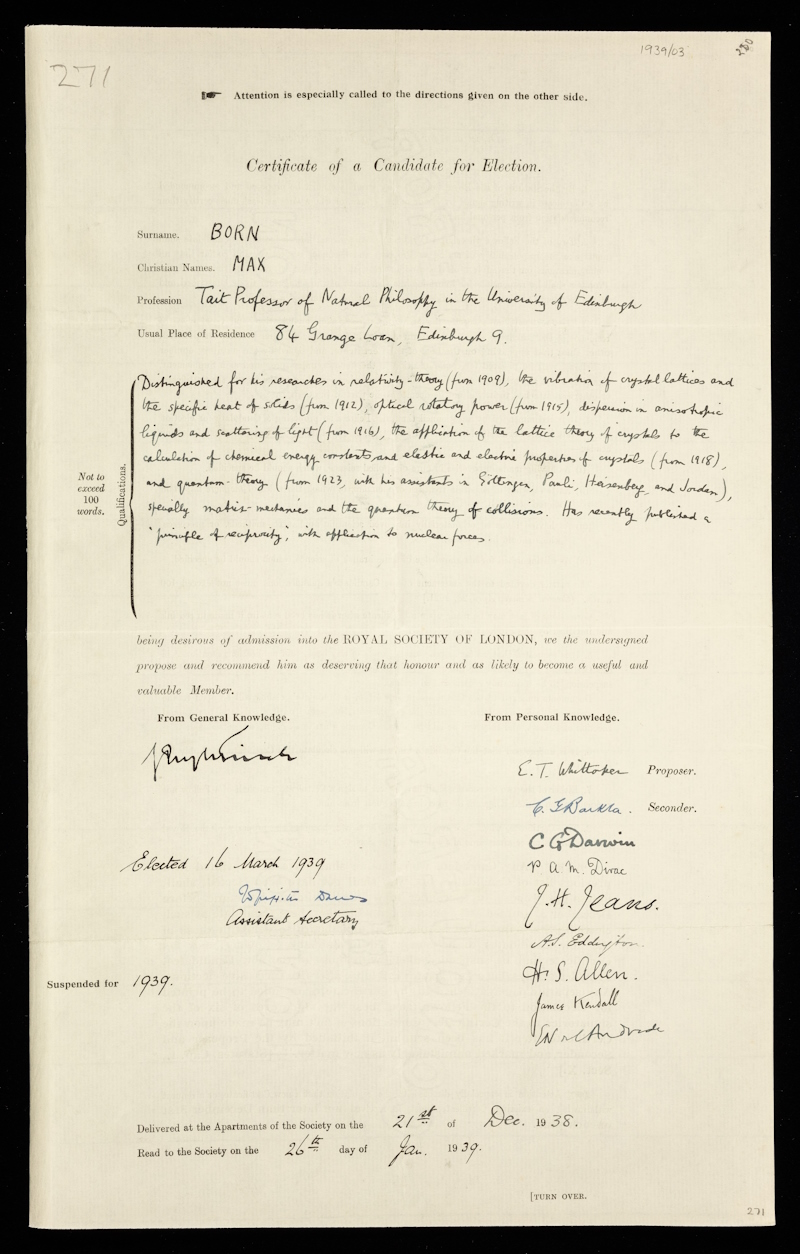 1939/03
280
271
Attention is especially called to the directions given on the other side.
Certificate of a Candidate for Election.
Surname. BORN
Christian Names. MAX
Profession Tait Professor of Natural Philosophy in the University of Edinburgh
Usual Place of Residence 84 Grange Loan, Edinburgh 9.
Not to exceed 100 words.
Qualifications.
Distinguished for his researches in relativity-theory (from 1909), the vibration of crystal lattices and
the specific heat of solids (from 1912), optical rotatory power (from 1915), dispersion in anisotropic
liquids and scattering of light (from 1916), the application of the lattice theory of crystals to the
calculation of chemical energy constants and elastic and electric properties of crystals (from 1918),
and quantum-theory (from 1923, with his assistants in Göttingen, Pauli, Heisenberg, and Jordan),
specially matrix-mechanics and the quantum theory of collisions. Has recently published a
'principle of reciprocity', with application to nuclear forces.
being desirous of admission into the ROYAL SOCIETY OF LONDON, we the undersigned
propose and recommend him as deserving that honour and as likely to become a useful and
valuable Member.
From General Knowledge.
From Personal Knowledge.
E. T. Whittaker Proposer.
C. G Barkla. Seconder.
C G Darwin
P. A. M. Dirac
J. H. Jeans.
A.S. Eddington.
H. S. Allen.
James Kendall
Andrade
Elected 16 March 1939
Assistant Secretary
Suspended for 1939.
Delivered at the Apartments of the Society on the 21st of Dec. 1938.
Read to the Society on the 26th day of Jan. 1939.
[TURN OVER.
271